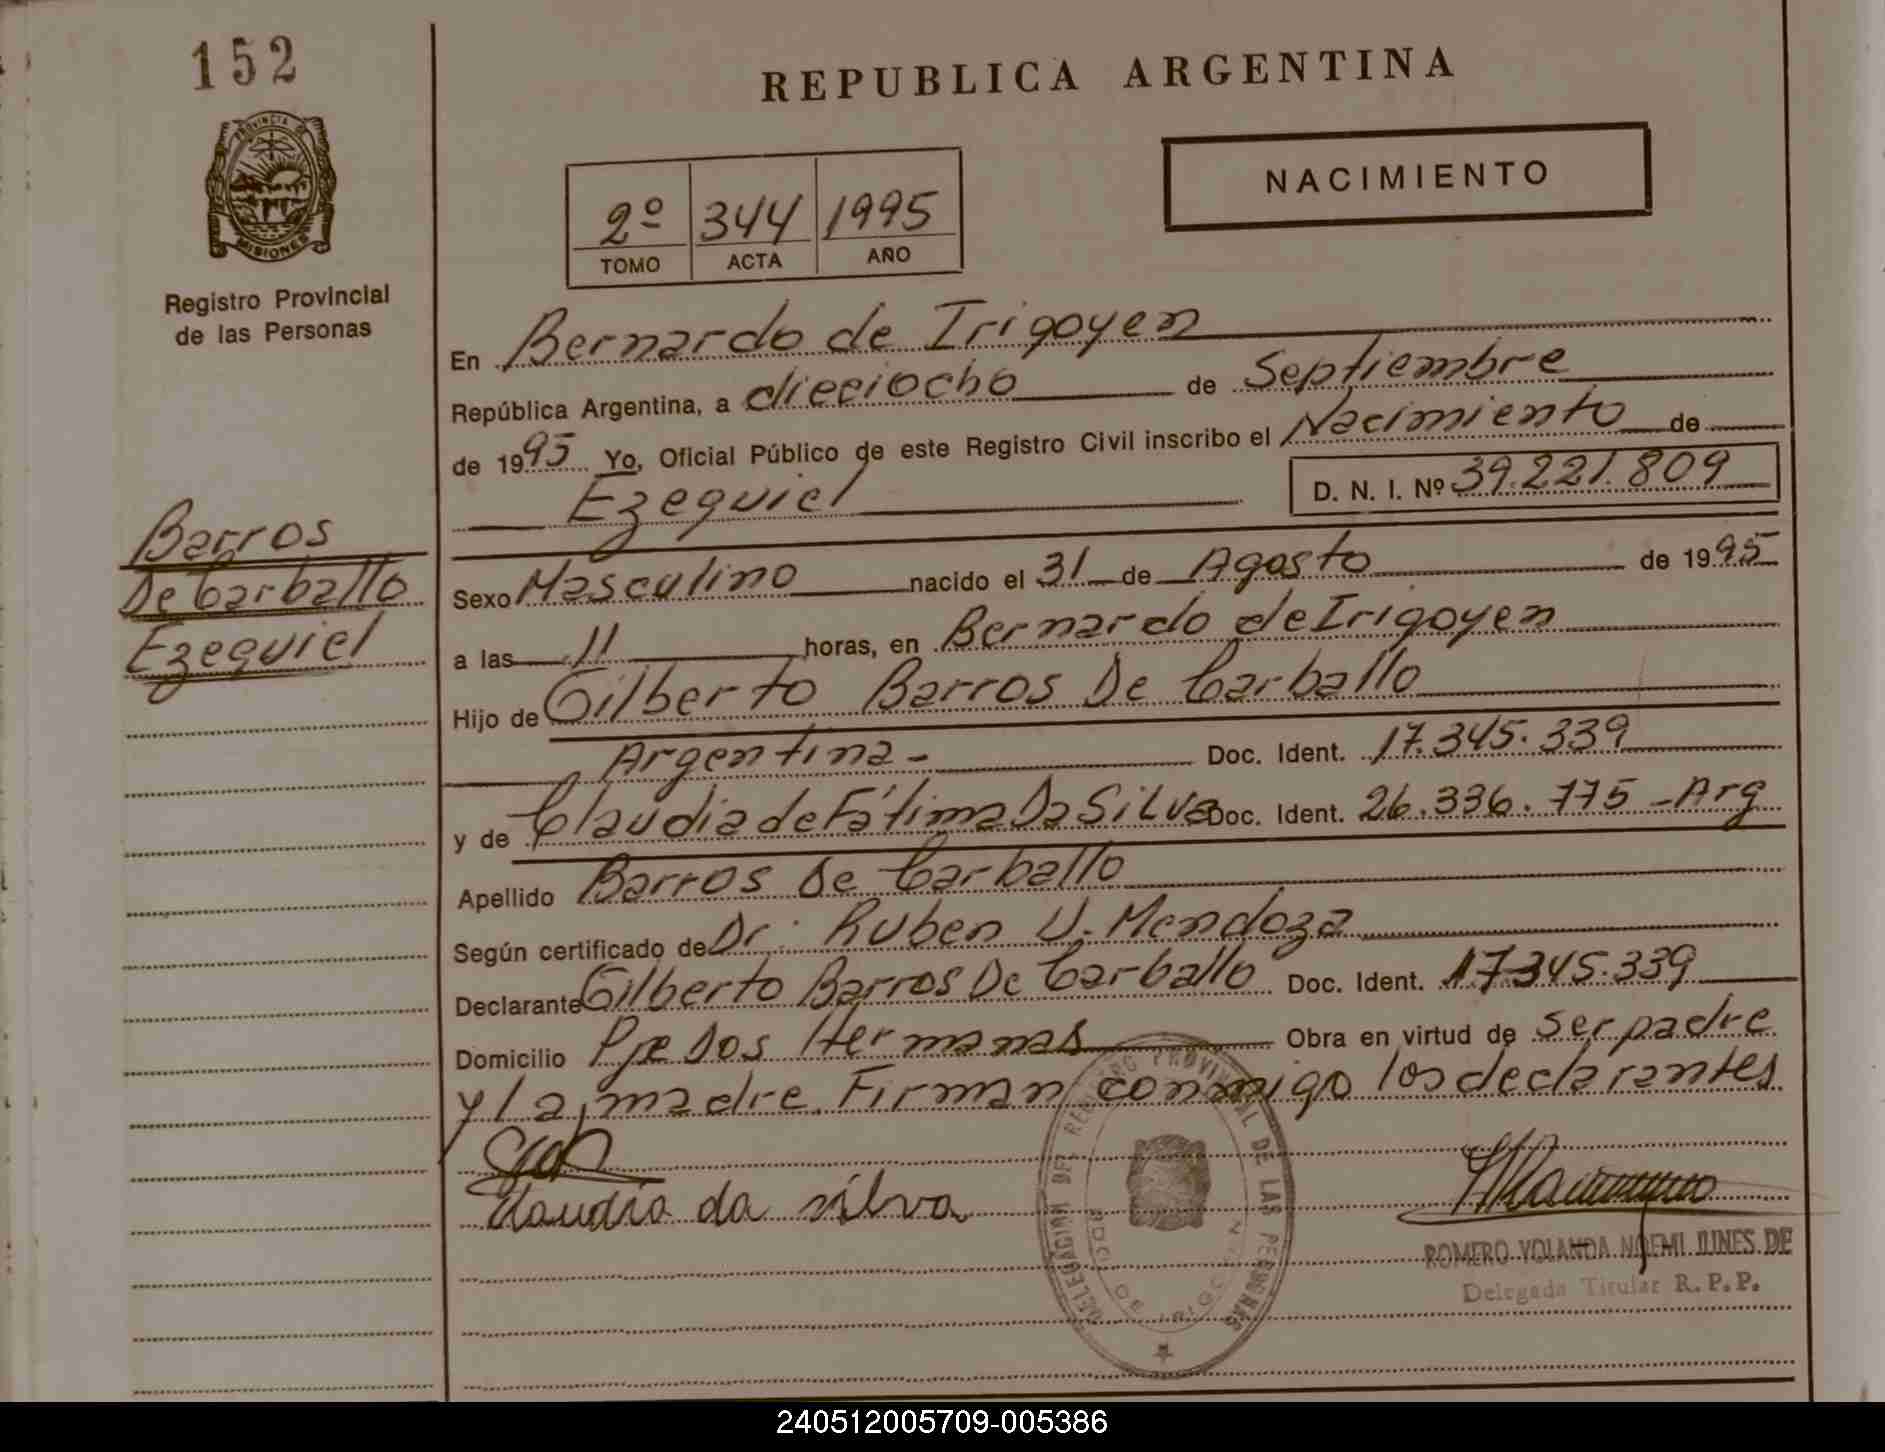 152
PROVINCIA DE
MISIONES
Registro Provincial
de las Personas
REPUBLICA ARGENTINA
NACIMIENTO
2º 344 1995
TOMO ACTA AÑO
En Bernardo de Irigoyen
República Argentina, a dieciocho de Septiembre
de 1995 Yo, Oficial Público de este Registro Civil inscribo el Nacimiento de
Ezequiel D. N. I. Nº 39.221.809
Barros
De Carballo
Ezequiel
Sexo Masculino nacido el 31 de Agosto de 1995
a las 11 horas, en Bernardo de Irigoyen
Hijo de Gilberto Barros De Carballo
Argentina- Doc. Ident. 17.345.339
y de Claudia de Fátima Da Silva Doc. Ident. 26.336.775 - Arg
Apellido Barros De Carballo
Según certificado de Dr. Ruben U. Mendoza
Declarante Gilberto Barros De Carballo Doc. Ident. 17.345.339
Domicilio Pje Dos Hermanas Obra en virtud de ser padre
y la madre. Firman conmigo los declarantes
Claudia da silva
DELEGACION DEL REGISTRO PROVINCIAL DE LAS PERSONAS
ROMERO YOLANDA NOEMI ILINES DE
Delegada Titular R.P.P.
240512005709-005386